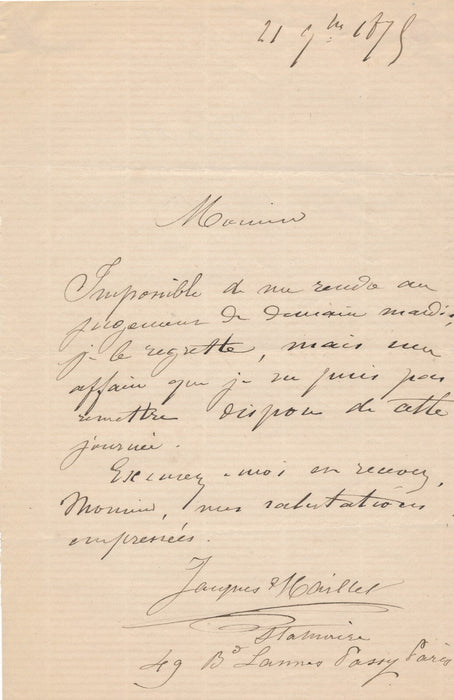 21 9bre 1875
Monsieur
Impossible de me rendre au
jugement de demain mardi,
je le regrette, mais une
affaire que je ne puis pas
remettre dispose de cette
journée.
Excusez-moi et recevez,
Monsieur, mes salutations
empressées.
Jacques Maillet
Statuaire
49 Bd Lannes Passy Paris